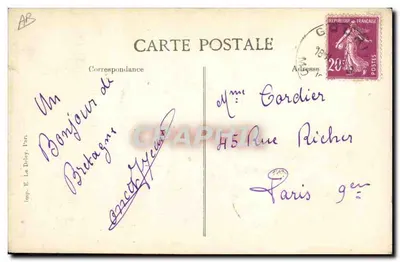 AB
CARTE POSTALE
Correspondance
Adresse
REPUBLIQUE FRANÇAISE
20c
POSTES
Un
Bonjour de
Bretagne
Mme Cordier
45 Rue Richer
Paris 9em
CHAPITRE
Imp. E. Le Deley, Paris